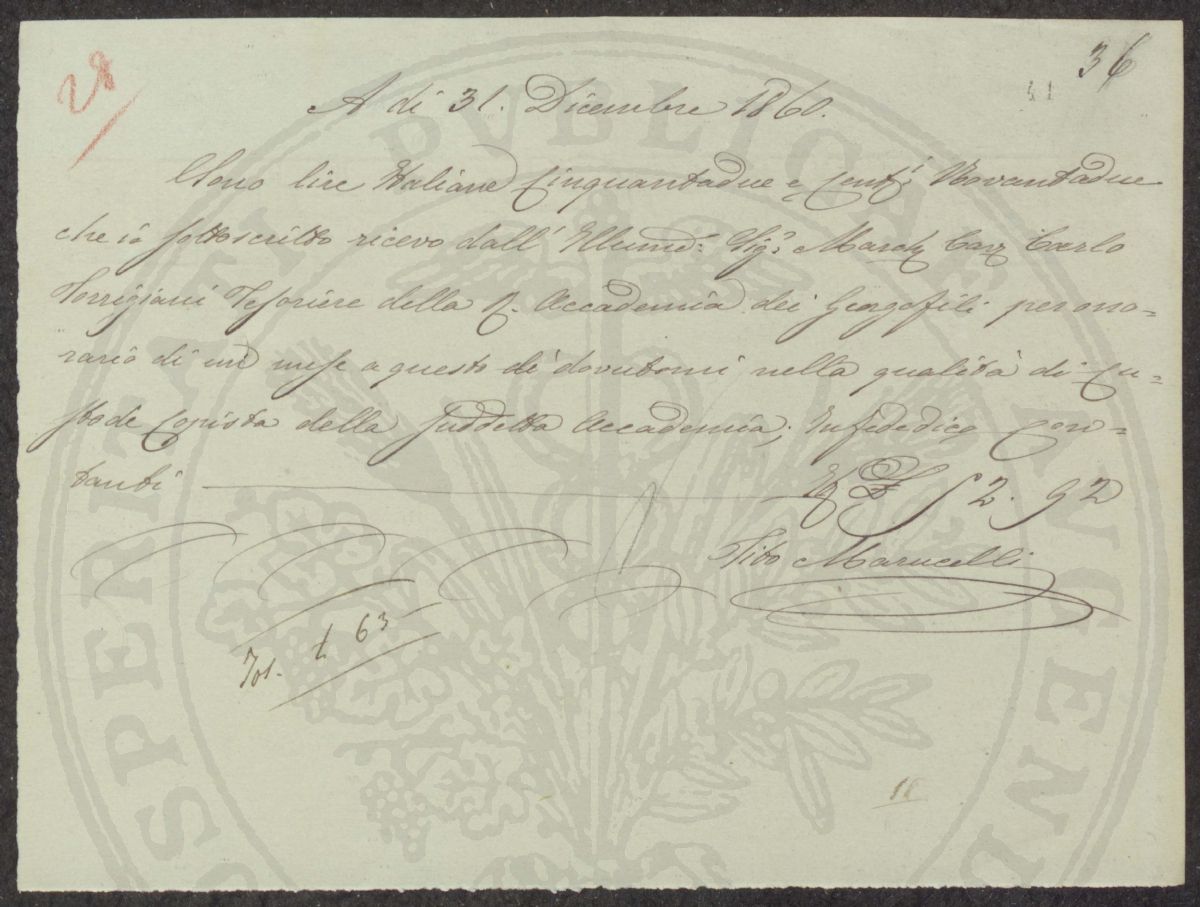 28
36
A di 31. Dicembre 1860.
Sono lire Italiane Cinquantadue e Cent.i Novantadue
che io sottoscritto ricevo dall' Illumo: Sig.r March Cav Carlo
Torrigiani Tesoriere della R. Accademia dei Georgofili per ono=
rario di un mese a questo dì dovutomi nella qualità di Cu=
stode Copista della suddetta Accademia; Infededico Con=
tanti 52. 92
Tito Marucelli
Tos. £ 63
PUBLICAE
PROSPERITATI
AUGENDAE